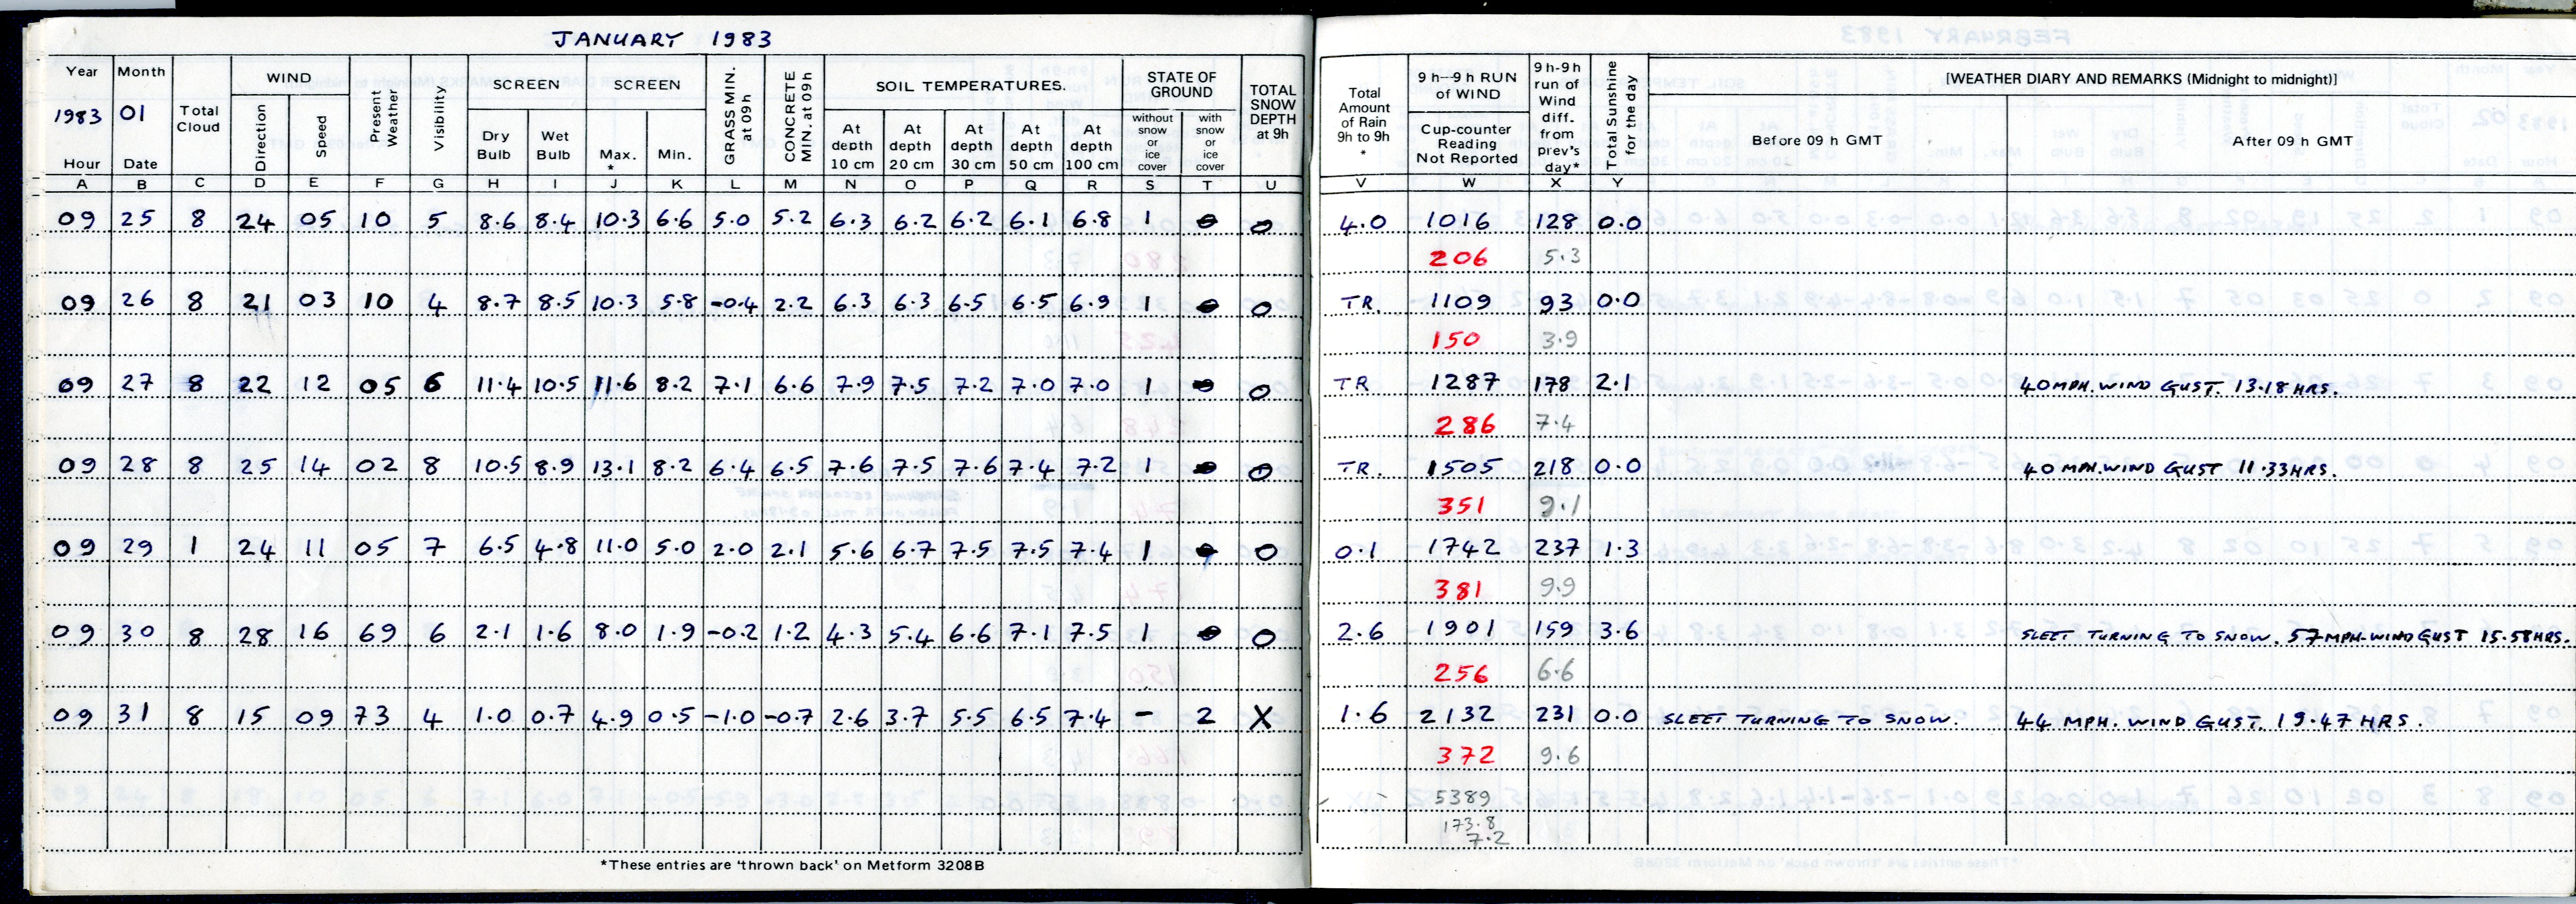 JANUARY 1983
Year Month Total Cloud WIND Present Weather Visibility SCREEN SCREEN GRASS MIN. at 09h CONCRETE MIN. at 09h SOIL TEMPERATURES. STATE OF GROUND TOTAL SNOW DEPTH at 9h Total Amount of Rain 9h to 9h * 9 h--9 h RUN of WIND 9 h-9h run of Wind diff. from prev's day* Total Sunshine for the day [WEATHER DIARY AND REMARKS (Midnight to midnight)]
1983 01 Direction Speed Dry Bulb Wet Bulb Max. * Min. At depth 10 cm At depth 20 cm At depth 30 cm At depth 50 cm At depth 100 cm without snow or ice cover with snow or ice cover Cup-counter Reading Not Reported Before 09 h GMT After 09 h GMT
Hour Date
A B C D E F G H I J K L M N O P Q R S T U V W X Y
09 25 8 24 05 10 5 8.6 8.4 10.3 6.6 5.0 5.2 6.3 6.2 6.2 6.1 6.8 1 0 4.0 1016 128 0.0
206 5.3
09 26 8 21 03 10 4 8.7 8.5 10.3 5.8 -0.4 2.2 6.3 6.3 6.5 6.5 6.9 1 0 TR. 1109 93 0.0
150 3.9
09 27 8 22 12 05 6 11.4 10.5 11.6 8.2 7.1 6.6 7.9 7.5 7.2 7.0 7.0 1 0 TR 1287 178 2.1 40 MPH. WIND GUST. 13.18 HRS.
286 7.4
09 28 8 25 14 02 8 10.5 8.9 13.1 8.2 6.4 6.5 7.6 7.5 7.6 7.4 7.2 1 0 TR. 1505 218 0.0 40 MPH. WIND GUST 11.33 HRS.
351 9.1
09 29 1 24 11 05 7 6.5 4.8 11.0 5.0 2.0 2.1 5.6 6.7 7.5 7.5 7.4 1 0 0.1 1742 237 1.3
381 9.9
09 30 8 28 16 69 6 2.1 1.6 8.0 1.9 -0.2 1.2 4.3 5.4 6.6 7.1 7.5 1 0 2.6 1901 159 3.6 SLEET TURNING TO SNOW. 57 MPH. WIND GUST 15.58 HRS.
256 6.6
09 31 8 15 09 73 4 1.0 0.7 4.9 0.5 -1.0 -0.7 2.6 3.7 5.5 6.5 7.4 - 2 X 1.6 2132 231 0.0 SLEET TURNING TO SNOW. 44 MPH. WIND GUST. 19.47 HRS.
372 9.6
5389
173.8
7.2
*These entries are 'thrown back' on Metform 3208B